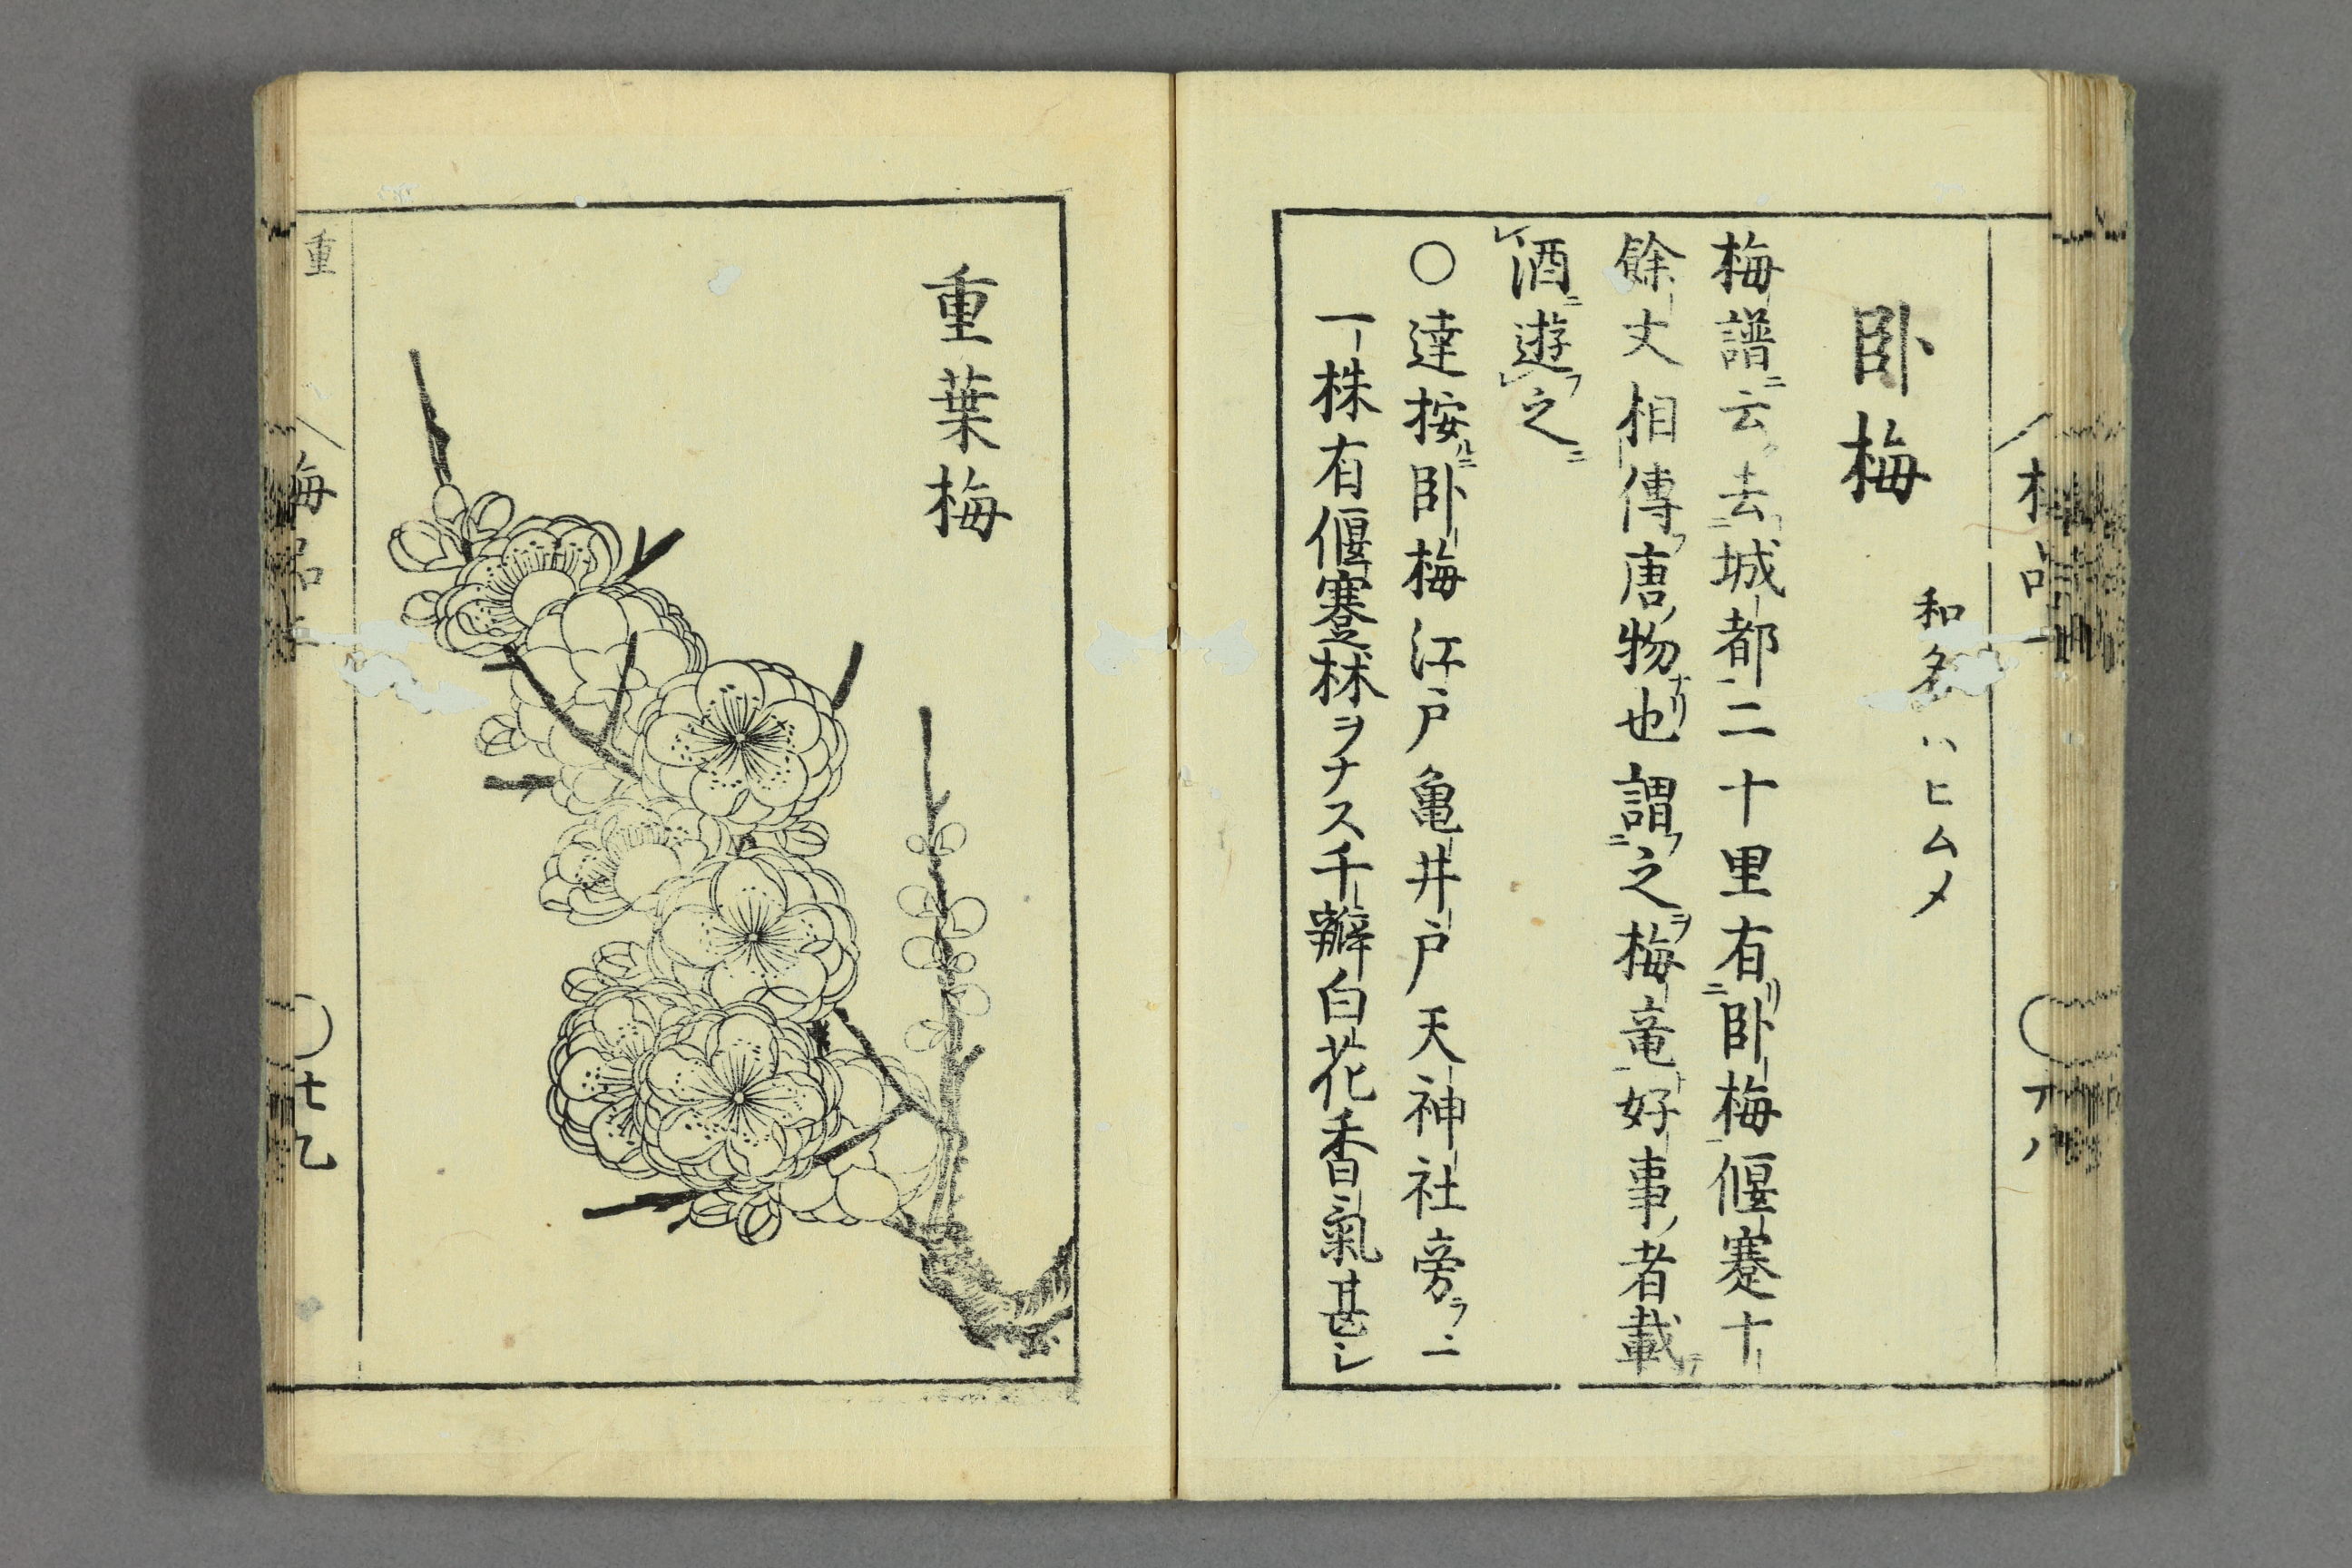 臥梅
和名ハヒムメ
梅譜ニ云ク去ニ城都二十里有リニ臥梅偃蹇十
餘丈相傳フ唐ノ物ナリ也謂フニ之ヲ梅竜好事ノ者載テ
レ酒ニ遊フレ之ニ
○達按ルニ臥梅江戸亀井戸天神社旁ラニ
一株有偃蹇ヲナス千瓣白花香氣甚シ
重葉梅
重
梅品
十九